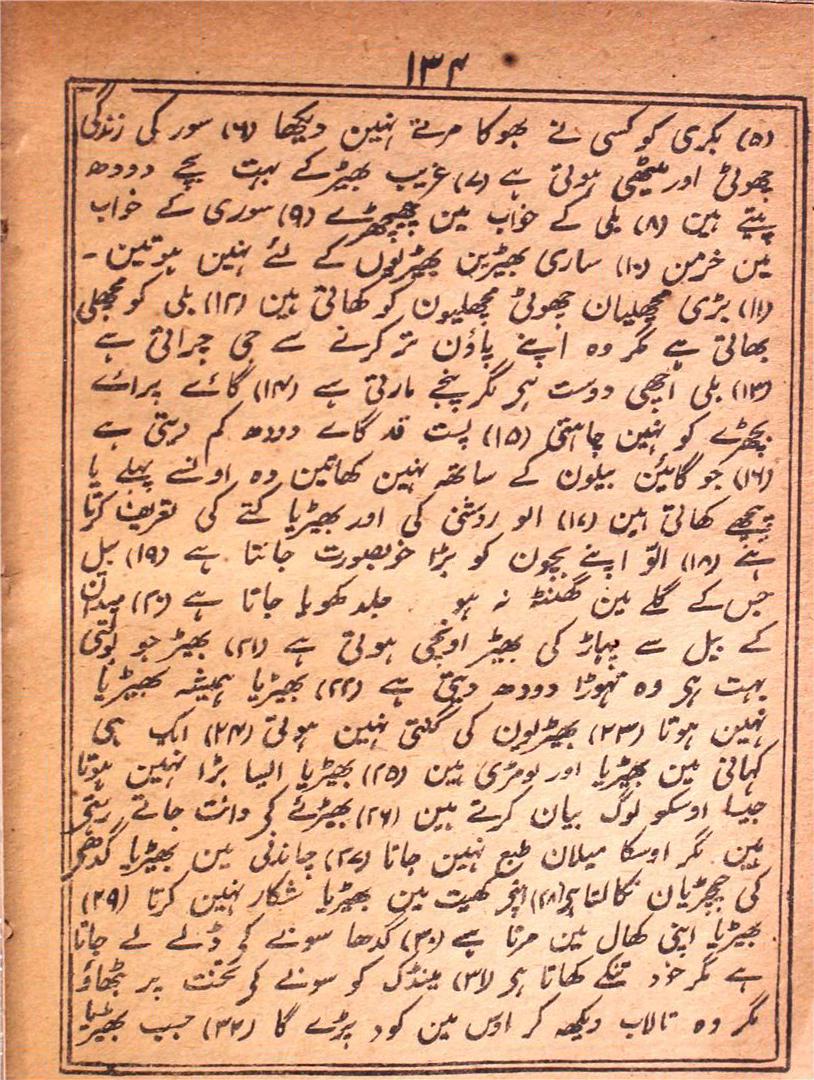 ۱۳۴
(۵) بکری کو کسی نے بھوکا مرتے نہین دیکھا (۶) سور کی زندگی
چھوٹی اور میٹھی ہوتی ہے (۷) غریب بھیڑ کے بہت بچے دودھ
پیتے ہین (۸) بلی کے خواب مین چھیچھڑے (۹) سوری کے خواب
مین خرمن (۱۰) ساری بھیڑین بھیڑیوں کے لئے نہین ہوتین ۔
(۱۱) بڑی مچھلیان چھوٹی مچھلیون کو کھاتی ہین (۱۲) بلی کو مچھلی
بھاتی ہے مگر وہ اپنے پاؤن تر کرنے سے جی چراتی ہے
(۱۳) بلی اچھی دوست ہی مگر پنجے مارتی ہے (۱۴) گاے پراے
بچھڑے کو نہین چاہتی (۱۵) پست قد گاے دودھ کم دیتی ہے
(۱۶) جو گائین بیلون کے ساتھ نہین کھاتین وہ اونسے پہلے یا
پیچھے کھاتی ہین (۱۷) الو روشنی کی اور بھیڑیا کتے کی تعریف کرتا
ہے (۱۸) الّو اپنے بچون کو بڑا خوبصورت جانتا ہے (۱۹) بیل
جس کے گلے مین گھنٹہ نہ ہو جلد کھویا جاتا ہے (۲۰) میدان
کے بیل سے پہاڑ کی بھیڑ اونچی ہوتی ہے (۲۱) بھیڑ جو بولتی
بہت ہی وہ تھوڑا دودھ دیتی ہے (۲۲) بھیڑیا ہمیشہ بھیڑیا
نہین ہوتا (۲۳) بھیڑیون کی گنتی نہین ہوتی (۲۴) ایک ہی
کہانی مین بھیڑیا اور لومڑی ہین (۲۵) بھیڑیا ایسا بڑا نہین ہوتا
جیسا اوسکو لوگ بیان کرتے ہین (۲۶) بھیڑئے کی دانت جاتے رہتی
ہین مگر اوسکا میلان طبع نہین جاتا (۲۷) چاندنی مین بھیڑیا گدھی
کی چچڑیان نکالتا ہی (۲۸) اپنی کھیت مین بھیڑیا شکار نہین کرتا (۲۹)
بھیڑیا اپنی کھال مین مرتا ہے (۳۰) گدھا سونے کی ڈلے لے جاتا
ہے مگر خود تنکے کھاتا ہی (۳۱) مینڈک کو سونے کی تخت پر بٹھاؤ
مگر وہ تالاب دیکھ کر اوس مین کود پڑے گا (۳۲) جب بھیڑیا